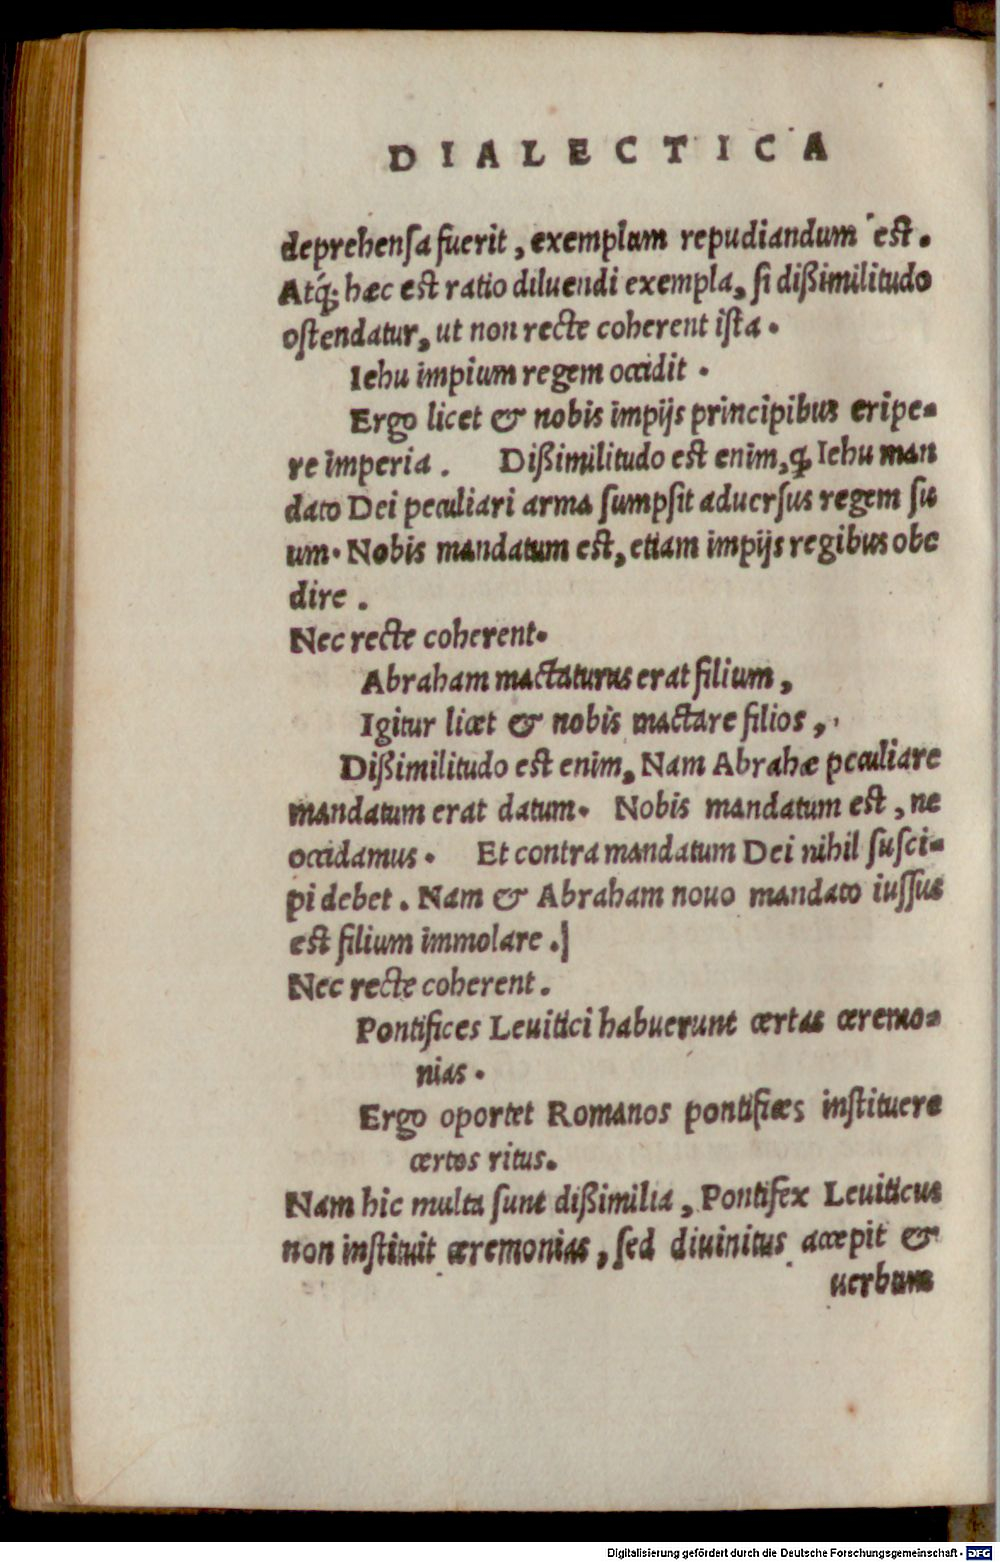 DIALECTICA
deprehensa fuerit, exemplum repudiandum est.
Atq́; hæc est ratio diluendi exempla, si dißimilitudo
ostendatur, ut non recte coherent ista.
Iehu impium regem occidit.
Ergo licet & nobis impijs principibus eripe-
re imperia. Dißimilitudo est enim, ꝙ Iehu man
dato Dei peculiari arma sumpsit aduersus regem su
um. Nobis mandatum est, etiam impijs regibus obe
dire.
Nec recte coherent.
Abraham mactaturus erat filium,
Igitur licet & nobis mactare filios,
Dißimilitudo est enim, Nam Abrahæ peculiare
mandatum erat datum. Nobis mandatum est, ne
occidamus. Et contra mandatum Dei nihil susci-
pi debet. Nam & Abraham nouo mandato iussus
est filium immolare.]
Nec recte coherent.
Pontifices Leuitici habuerunt certas ceremo-
nias.
Ergo oportet Romanos pontifices instituere
certos ritus.
Nam hic multa sunt dißimilia, Pontifex Leuiticus
non instituit ceremonias, sed diuinitus accepit &
uerbum
Digitalisierung gefördert durch die Deutsche Forschungsgemeinschaft - DFG